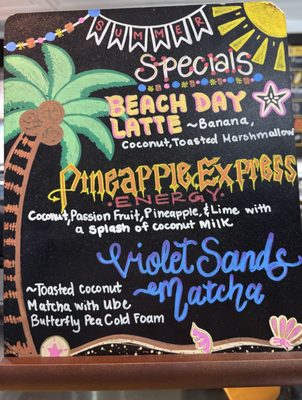 SUMMER
Specials
BEACH DAY
LATTE ~Banana,
Coconut, Toasted Marshmallow
Pineapple Express
·ENERGY·
Coconut, Passion Fruit, Pineapple, & Lime with
a splash of coconut Milk
Violet Sands
~Matcha
~Toasted Coconut
Matcha with Ube
Butterfly Pea Cold Foam